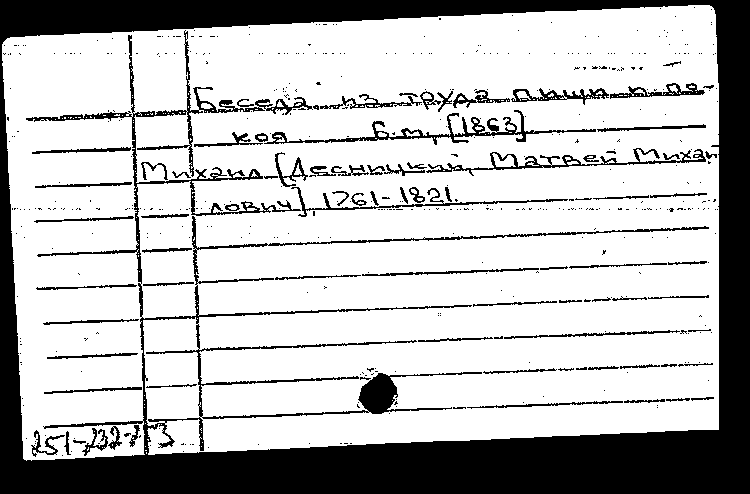 Беседа из труда пищи и по-
коя Б.м., [1863]
Михаил [Десницкий, Матвей Михай
лович], 1761-1821.